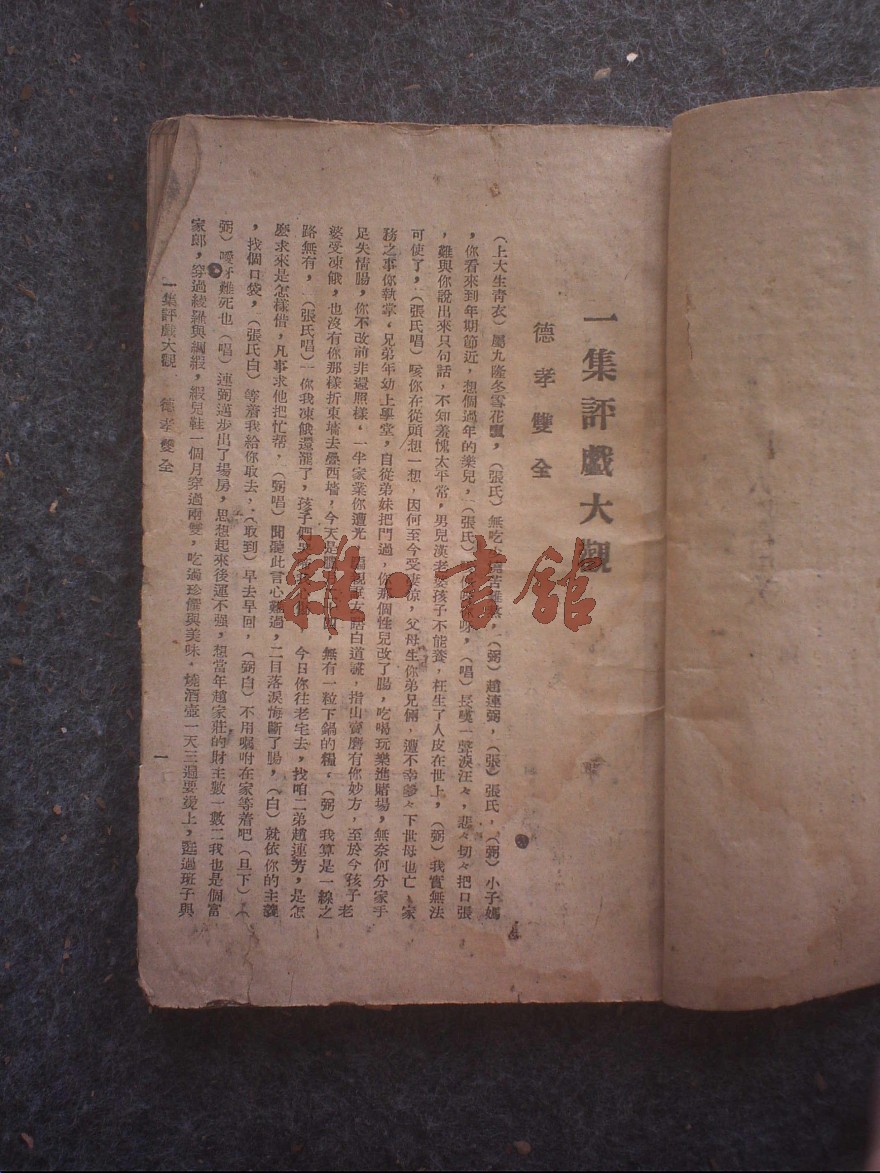 一集評戲大觀
德孝雙全
(上大生靑衣)屬九隆冬雪花飄,(張氏)無吃少燒苦難熬,(弼)趙連弼,(張)張氏,(弼)小子媽
,你看來到年期節近,想個過年的樂兒,(張氏)呀,(唱)長嘆一聲淚汪々,悲々切々把口張
,難與你說出來只句話,不知羞愧太平常,男兒漢老婆孩子不能養,枉生了人皮在世上,(弼)我實無法
可使了,(張氏唱)咳你在從頭想一想,因何至今受凄凉,父母生你弟兄倆,遭不幸爹々下世母也亡,家
務之事你執掌,兄弟年幼上學堂,自從弟妹把門過,你那個性兒改了腸,吃喝玩樂進賭場,無奈何分家手
足失情腸,你不改前非還照樣,一半家業你遭光,親友諸白道謊,指山賣磨有你妙方,至於今孩子老
婆受凍餓,也沒有你那樣折東墻去壘西墻,今天是臘月,無有一粒下鍋的糧,(弼)我算是一線之
路無有,(張氏唱)你我凍餓還罷了,孩子們,今日你往老宅去,找咱二弟趙連芳,是怎
麽求來是怎樣借,凡事求他把忙帮,(弼唱)聞聽此言心難過,二目落淚悔斷了腸,(白)就依你的主義
,找個口袋,(張氏白)等着我給你取去,(取到)早去早回,(弼白)不用囑咐在家等着吧(旦下)(
弼)噯呀難死也(唱)連弼邁步出了塲房,思想起來後運不强,想當年趙家莊的財主數一數二我也是個富
家郎,穿過綾羅與綢緞,緞兒鞋一個月穿過兩雙,吃過珍饈與美味,燒酒壺一天三遍要燙上,逛過班子與
一集評戲大觀 德孝雙全 一
雜·書館